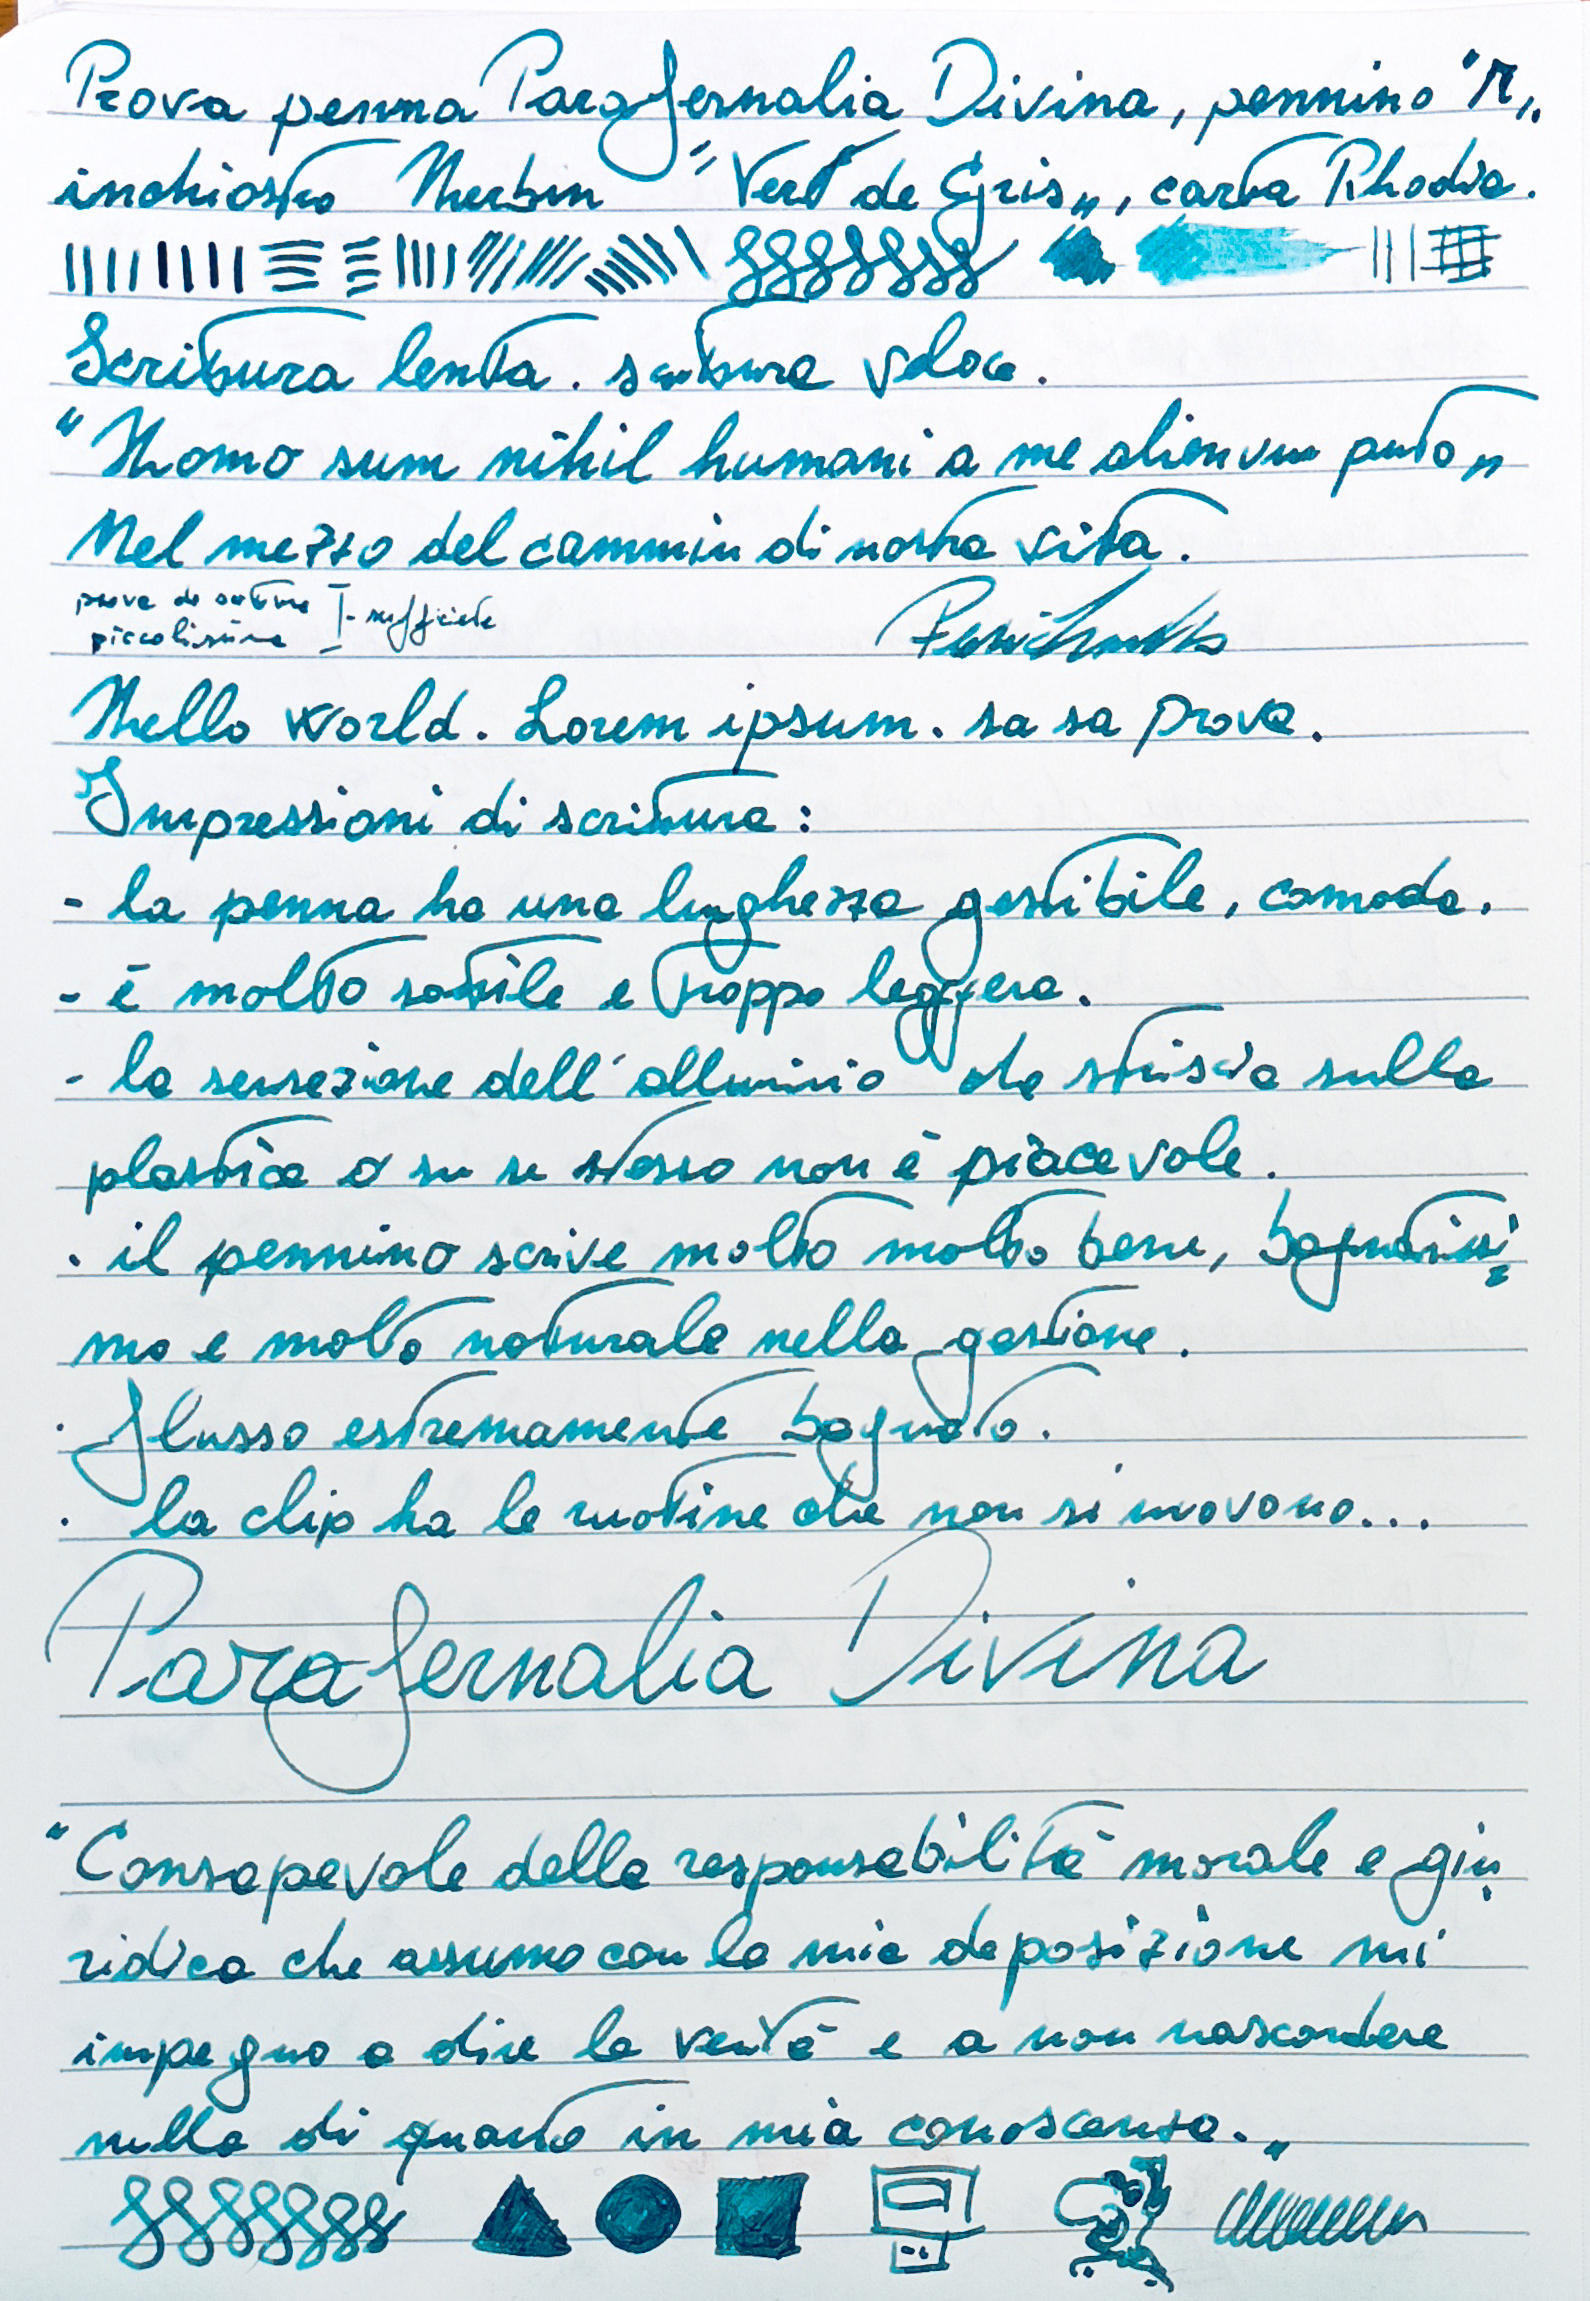 Prova penna Parafernalia Divina, pennino "M„
inchiostro Herbin "Vert de Gris„, carta Rhodia.
Scrittura lenta. scrittura veloce.
"Homo sum nihil humani a me alienum puto„
Nel mezzo del cammin di nostra vita.
prova di scrittura
piccolissima - sufficiente
Hello world. Lorem ipsum. sa sa prova.
Impressioni di scrittura:
- la penna ha una lunghezza gestibile, comoda.
- è molto sottile e troppo leggera.
- la sensazione dell'alluminio che striscia sulla
plastica o su se stesso non è piacevole.
. il pennino scrive molto molto bene, bagnatissi
mo e molto naturale nella gestione.
. flusso estremamente bagnato.
. la clip ha le ruotine che non si muovono...
Parafernalia Divina
"Consapevole della responsabilità morale e giu
ridica che assumo con la mia deposizione mi
impegno a dire la verità e a non nascondere
nulla di quanto in mia conoscenza.„